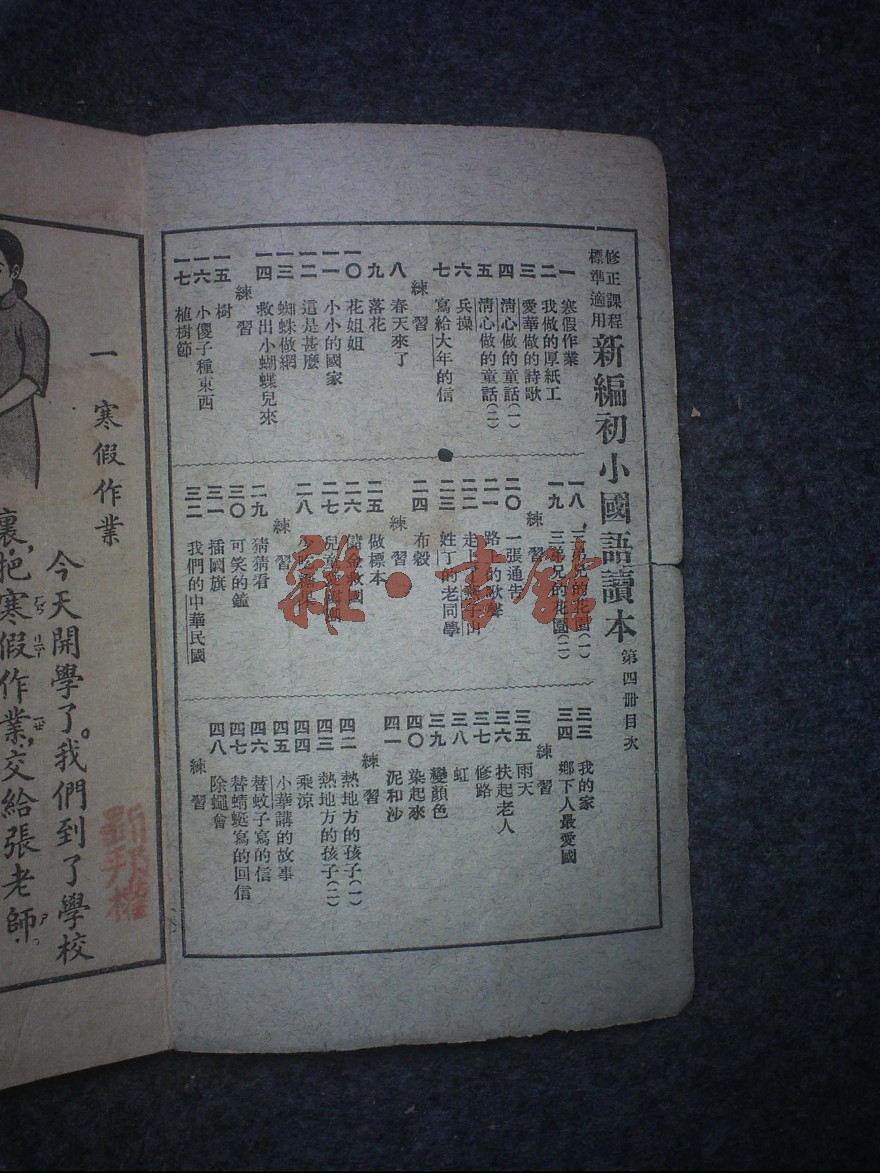 修正課程
標準適用
新編初小國語讀本
第四冊目次
一 寒假作業
二 我做的厚紙工
三 愛華做的詩歌
四 清心做的童話(一)
五 清心做的童話(二)
六 兵操
七 寫給大年的信
練習
八 春天來了
九 落花
一〇 花姐姐
一一 小小的國家
一二 這是甚麼
一三 蜘蛛做網
一四 救出小蝴蝶兒來
練習
一五 樹
一六 小傻子種東西
一七 植樹節
一八 三弟兄的花園(一)
一九 三弟兄的花園(二)
練習
二〇 一張通告
二一 路上的歌聲
二二 走上燕子山
二三 姓丁的老同學
二四 布穀
練習
二五 做標本
二六 儲金救國
二七 兒童
二八
練習
二九 猜猜看
三〇 可笑的鐘
三一 插國旗
三二 我們的中華民國
三三 我的家
三四 鄉下人最愛國
練習
三五 雨天
三六 扶起老人
三七 修路
三八 虹
三九 變顏色
四〇 染起來
四一 泥和沙
練習
四二 熱地方的孩子(一)
四三 熱地方的孩子(二)
四四 乘涼
四五 小華講的故事
四六 替蚊子寫的信
四七 替蜻蜓寫的回信
四八 除蠅會
練習
雜·書館
一 寒假作業
今天開學了。我們到了學校
裏,把寒假作業,交給張老師.
劉邦權